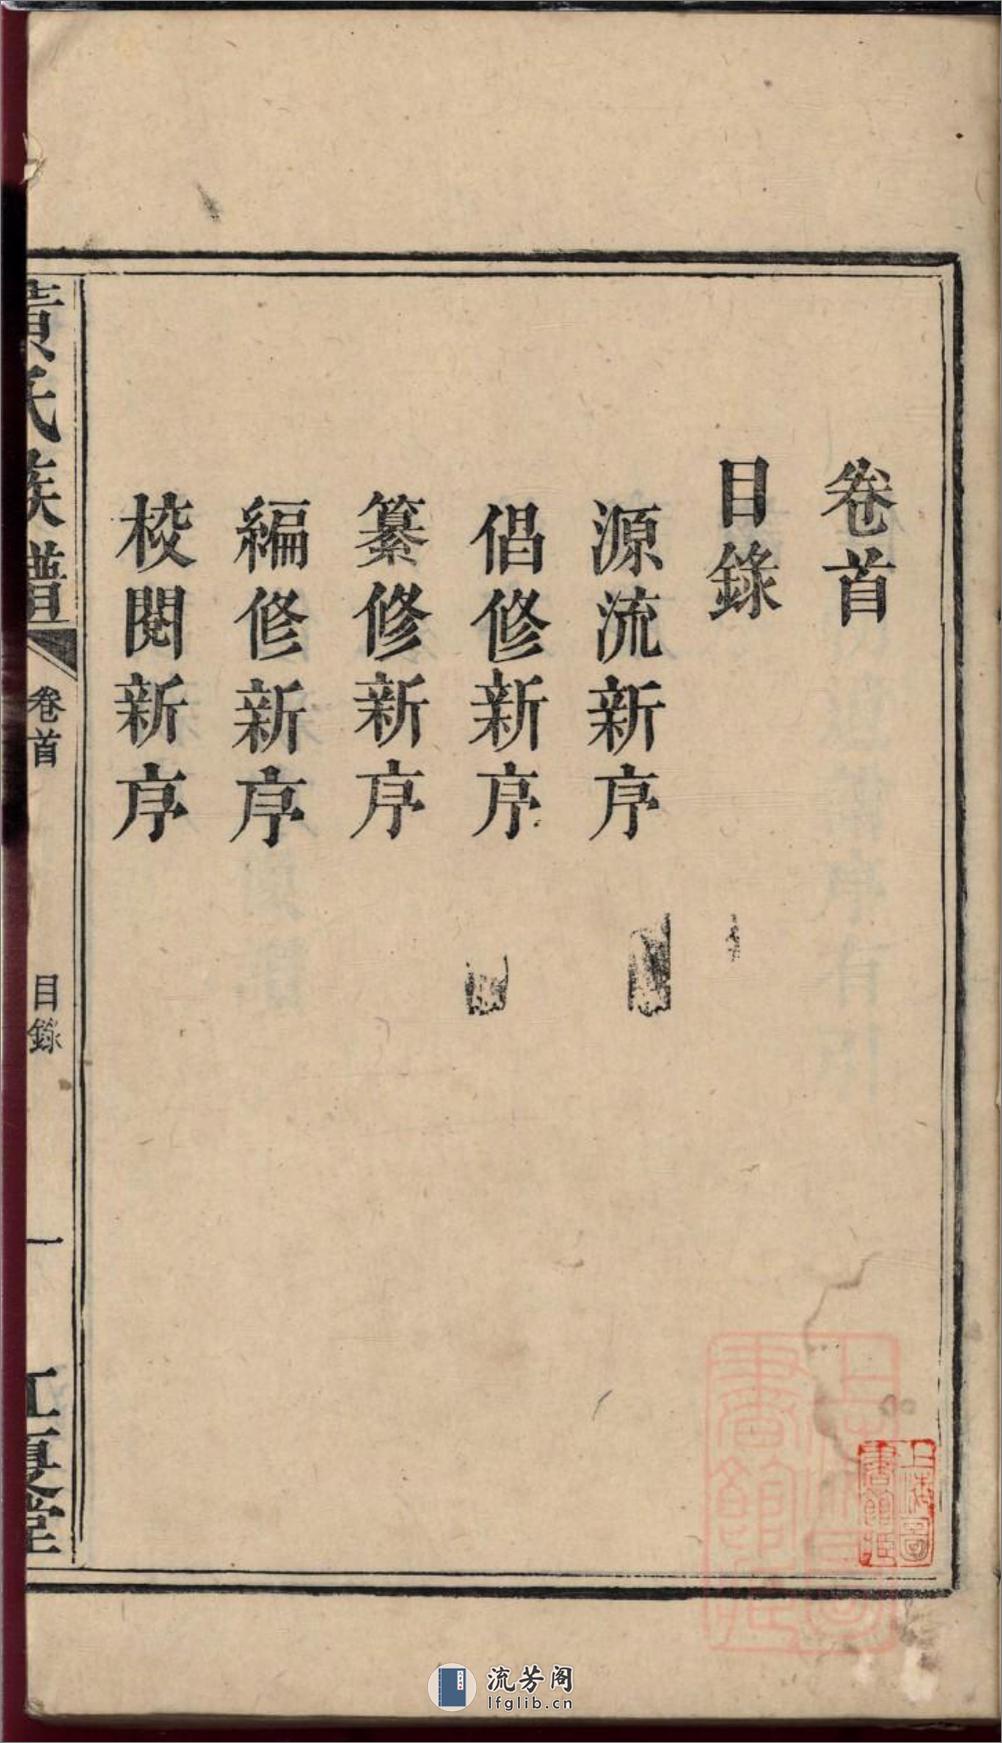 卷首
目錄
源流新序
倡修新序
纂修新序
編修新序
校閱新序
黃氏族譜
卷首
目錄
一
江夏堂
上海圖書館藏
流芳阁
lfglib.cn